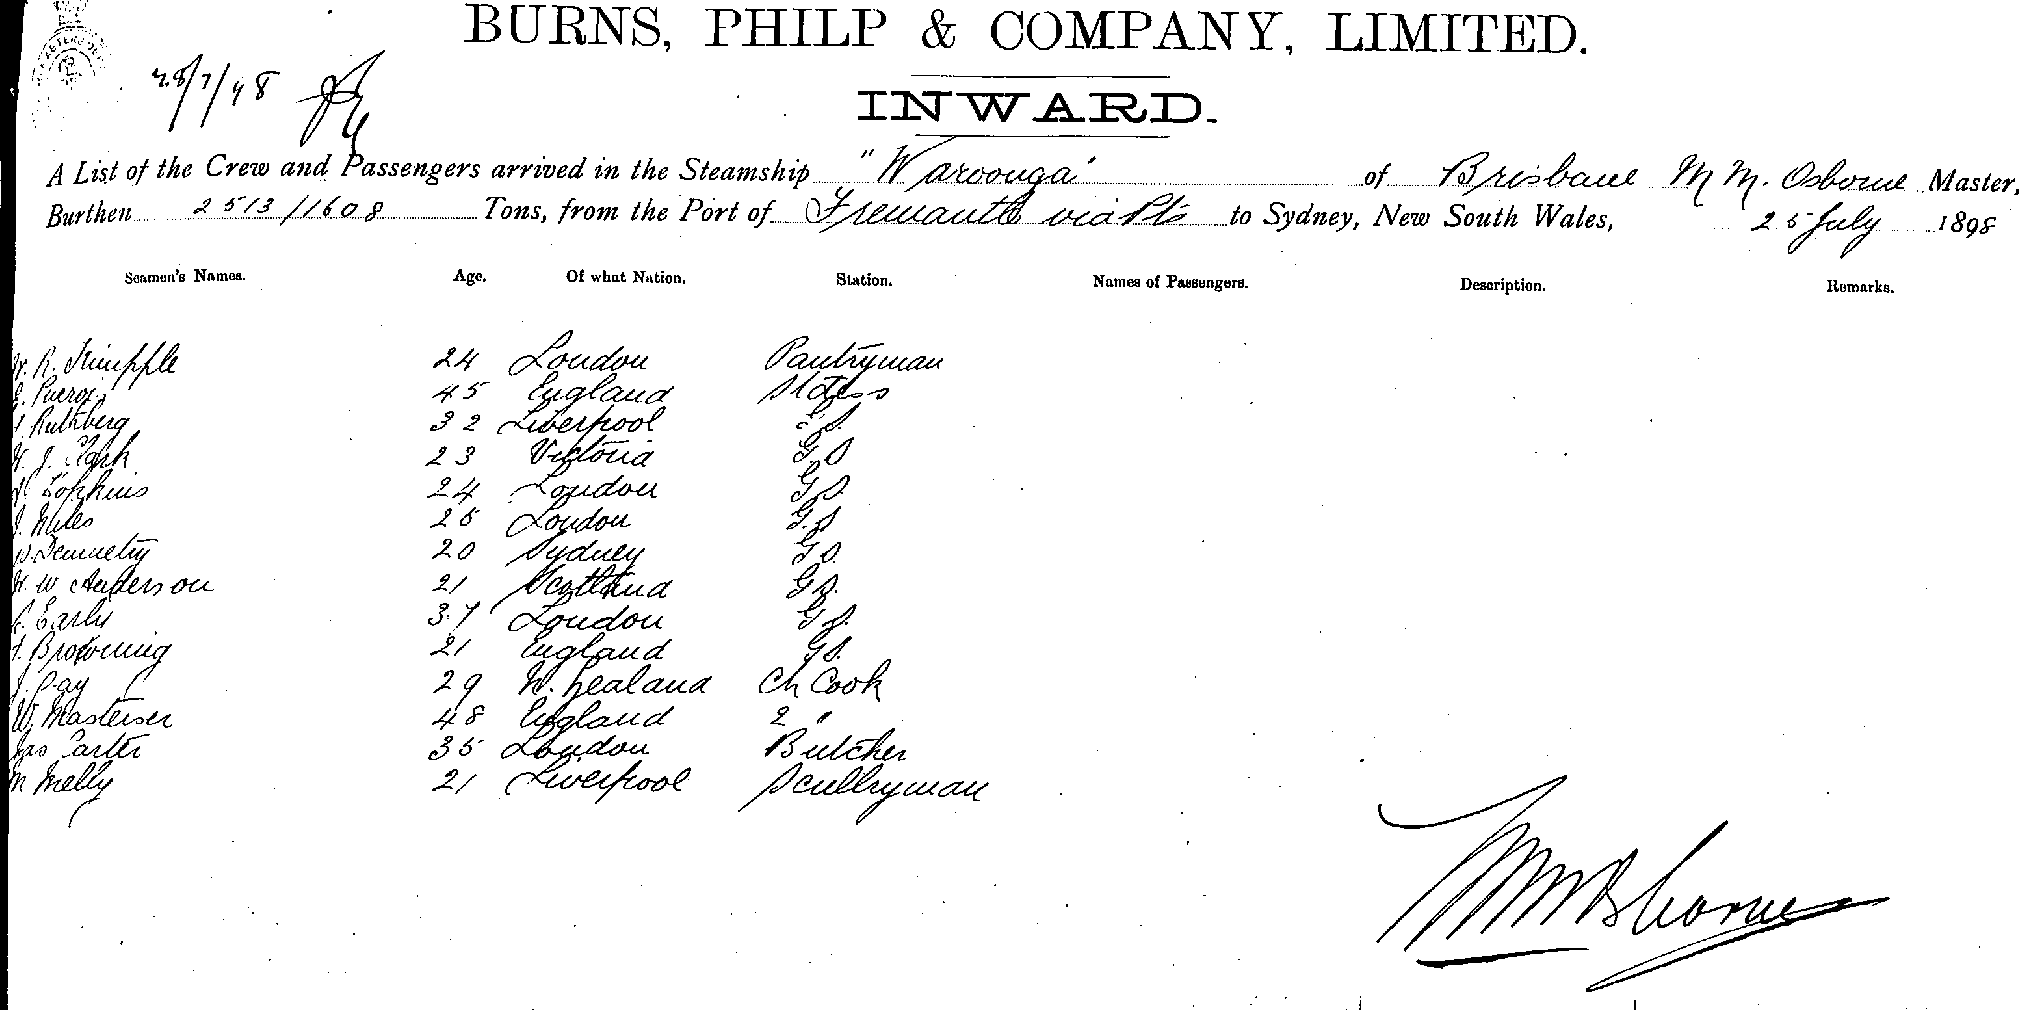 BURNS, PHILP & COMPANY, LIMITED.
28/7/98
INWARD.
A List of the Crew and Passengers arrived in the Steamship "Waroonga" of Brisbane M M. Osborne Master,
Burthen 2513/1608 Tons, from the Port of Fremantle via Pts to Sydney, New South Wales, 25 July 1898
Seamen's Names. Age. Of what Nation. Station. Names of Passengers. Description. Remarks.
R. 24 London Pantryman
45 England Stdess
Ruthberg 32 Liverpool
J. Clark 23 Victoria G.S
Hopkins 24 London G.S.
Miles 25 London G.S
Demnetry 20 Sydney G.S.
W Anderson 21 Scotland G.S.
Early 37 London G.S.
Browning 21 England G.S.
Day 29 N. Zealand Ch Cook
W. Masterser 48 England 2 "
Jas Carter 35 London Butcher
M Melly 21 Liverpool Scullryman
M M Osborne